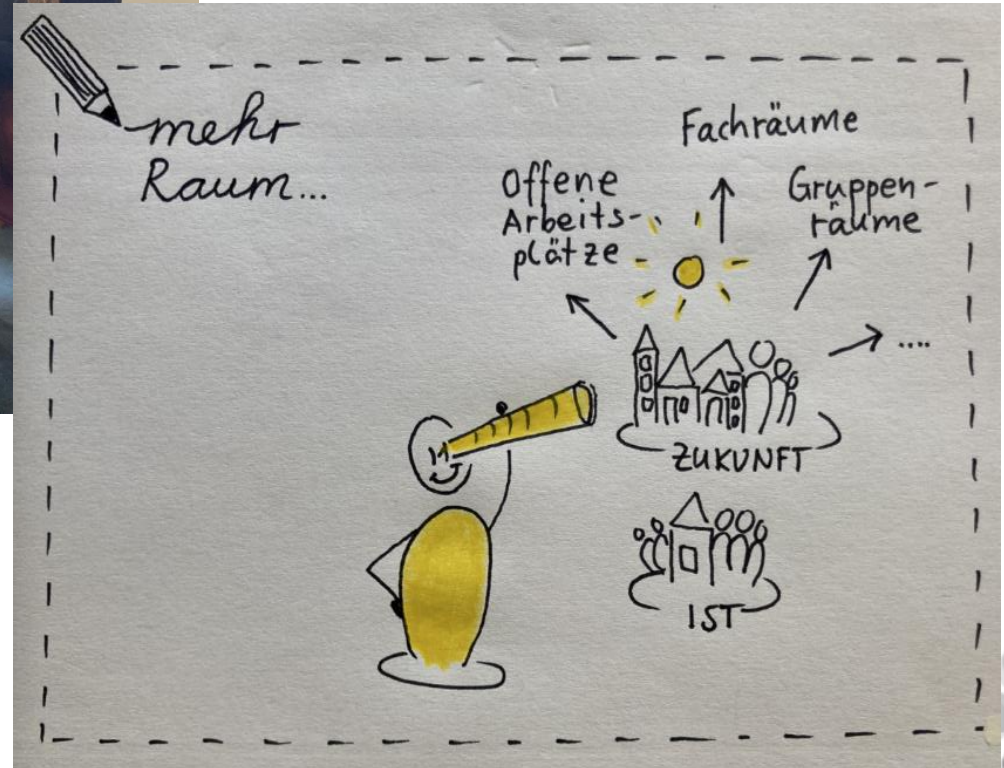 mehr
Raum...
Fachräume
Offene
Arbeits-
plätze
Gruppen-
räume
....
ZUKUNFT
IST